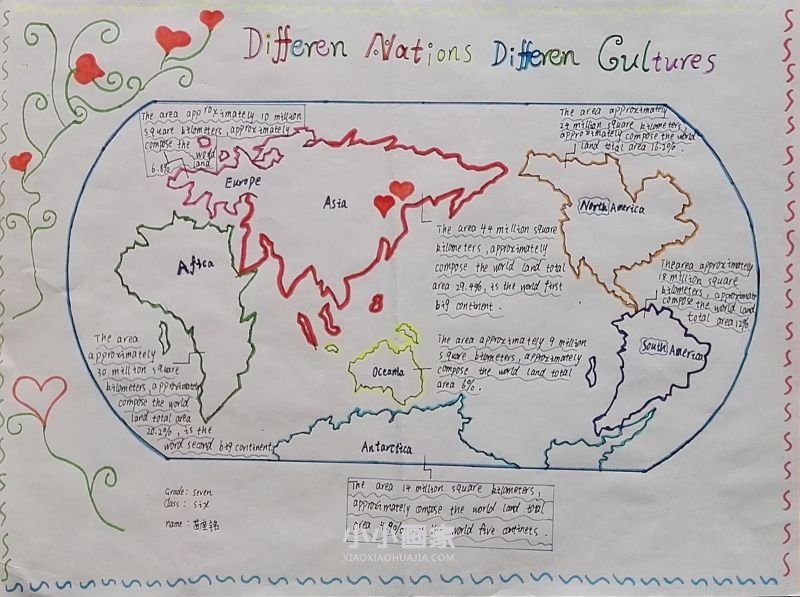 Differen Nations Differen Cultures
The area approximately 10 million
square kilometers, approximately
compose the world
land
6.8%
Europe
Asia
Africa
The area approximately
24 million square kilometers,
approximately compose the world
land total area 16.2%.
North America
The area 44 million square
kilometers, approximately
compose the world land total
area 29.4%, is the world first
big continent.
The area approximately
18 million square
kilometers, approximate
compose the world land
total area 12%
South America
The area
approximately
30 million square
kilometers, approximate
compose the world
land total area
20.2%, is the
word second big continent
The area approximately 9 million
square kilometers, approximately
compose the world land total
area 6%.
Oceania
Antarctica
The area 14 million square kilometers,
approximately compose the world land total
area 4.9% world five continets.
Grade: seven
Class: six
name:
小小画家
XIAOXIAOHUAJIA.COM